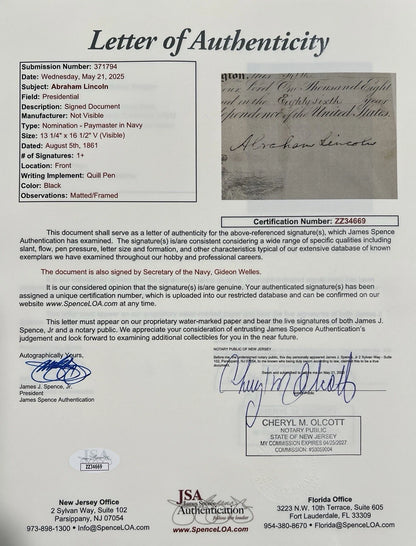 Letter of Authenticity
Submission Number: 371794
Date: Wednesday, May 21, 2025
Subject: Abraham Lincoln
Field: Presidential
Description: Signed Document
Manufacturer: Not Visible
Type: Nomination - Paymaster in Navy
Size: 13 1/4" x 16 1/2" V (Visible)
Dated: August 5th, 1861
# of Signatures: 1+
Location: Front
Writing Implement: Quill Pen
Color: Black
Observations: Matted/Framed
Lord One Thousand Eight
in the Eightysixth Year
dependence of the United States.
Abraham Lincoln
Certification Number: ZZ34669
This document shall serve as a letter of authenticity for the above-referenced signature(s), which James Spence
Authentication has examined. The signature(s) is/are consistent considering a wide range of specific qualities including
slant, flow, pen pressure, letter size and formation, and other characteristics typical of our extensive database of known
exemplars we have examined throughout our hobby and professional careers.
The document is also signed by Secretary of the Navy, Gideon Welles.
It is our considered opinion that the signature(s) is/are genuine. Your authenticated signature(s) has been
assigned a unique certification number, which is uploaded into our restricted database and can be confirmed on our
website www.SpenceLOA.com at any time.
This letter must appear on our proprietary water-marked paper and bear the live signatures of both James J.
Spence, Jr and a notary public. We appreciate your consideration of entrusting James Spence Authentication's
judgement and look forward to examining additional collectibles for you in the near future.
Autographically Yours,
James J. Spence, Jr.
President
James Spence Authentication
NOTARY PUBLIC OF NEW JERSEY
Before me, the undersigned notary public, this day personally appeared James J. Spence, Jr 2 Sylvan Way - Suite
102, Parsippany, NJ 07054, to me known who being duly sworn according to law, claims this to be a
true document.
Sworn and subscribed to before me May 21, 2025
Cheryl M Olcott
CHERYL M. OLCOTT
NOTARY PUBLIC
STATE OF NEW JERSEY
MY COMMISSION EXPIRES 04/25/2027
COMMISSION: #50059004
JSA
ZZ34669
New Jersey Office
2 Sylvan Way, Suite 102
Parsippany, NJ 07054
973-898-1300 • Info@SpenceLOA.com
JSA
James Spence
Authentication
follow the leader
www.SpenceLOA.com
Florida Office
3223 N.W. 10th Terrace, Suite 605
Fort Lauderdale, FL 33309
954-380-8670 • Florida@SpenceLOA.com